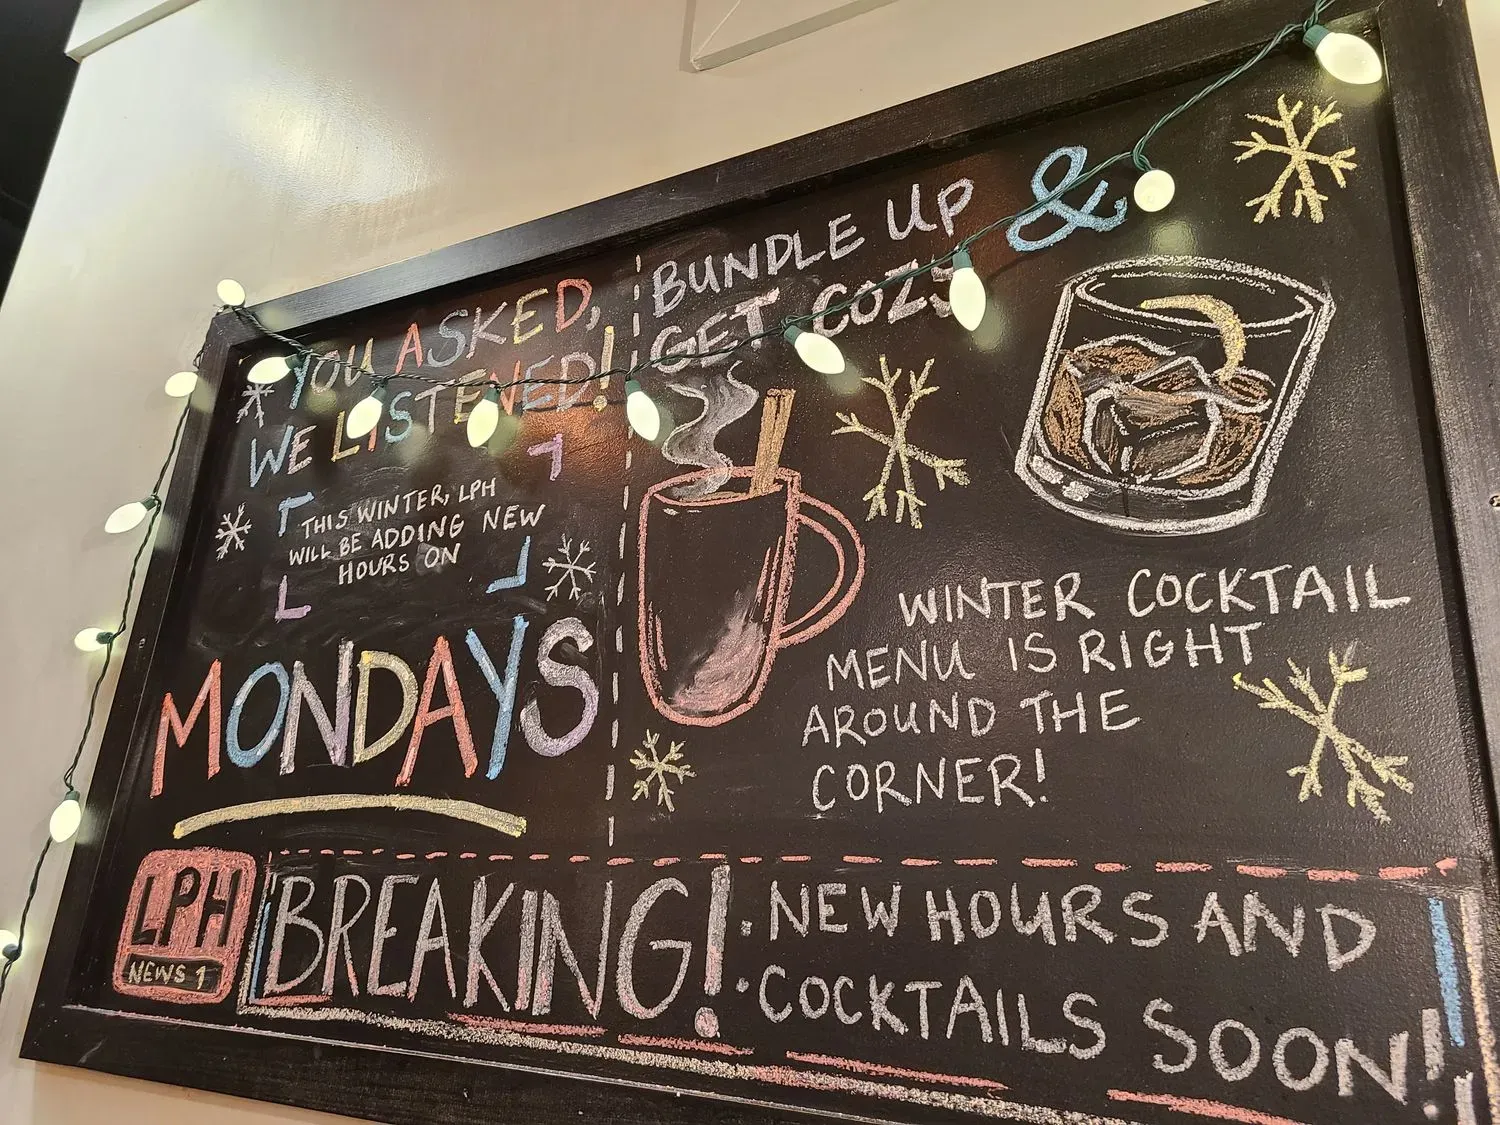 YOU ASKED,
WE LISTENED!
THIS WINTER, LPH
WILL BE ADDING NEW
HOURS ON
MONDAYS
BUNDLE UP &
GET COZY
WINTER COCKTAIL
MENU IS RIGHT
AROUND THE
CORNER!
LPH
NEWS 1
BREAKING!
• NEW HOURS AND
• COCKTAILS SOON!